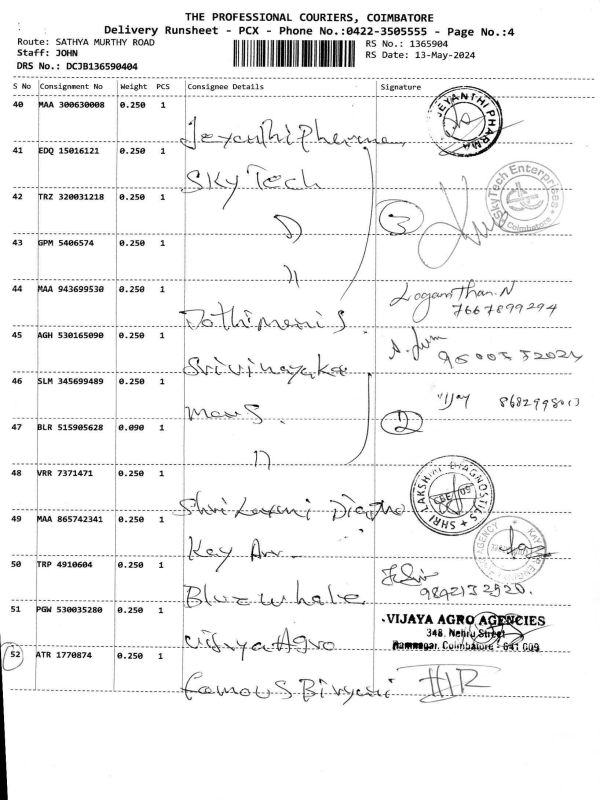 THE PROFESSIONAL COURIERS, COIMBATORE
Delivery Runsheet - PCX - Phone No.:0422-3505555 - Page No.:4
Route: SATHYA MURTHY ROAD
RS No.: 1365904
Staff: JOHN
RS Date: 13-May-2024
DRS No.: DCJB136590404
S No Consignment No Weight PCS Consignee Details Signature
40 MAA 300630008 0.250 1 Jeyanthi Pharma JEYANTHI PHARMA
41 EDQ 15016121 0.250 1 Sky Tech SkyTech Enterprises Coimbatore
42 TRZ 320031218 0.250 1 3
43 GPM 5406574 0.250 1
44 MAA 943699530 0.250 1 Loganathan.N
7667899294
45 AGH 530165090 0.250 1 Srivinayaka
46 SLM 345699489 0.250 1 Vijay
47 BLR 515905628 0.090 1 2
48 VRR 7371471 0.250 1 Shri Laxmi SHRI LAKSHMI DIAGNOSTICS
49 MAA 865742341 0.250 1 Kay Arr
50 TRP 4910604 0.250 1 Blue whale
51 PGW 530035280 0.250 1 Vijaya Agro VIJAYA AGRO AGENCIES
348, Nehru Street
Ramnagar, Coimbatore - 641 009
52 ATR 1770874 0.250 1 Famous Biryani